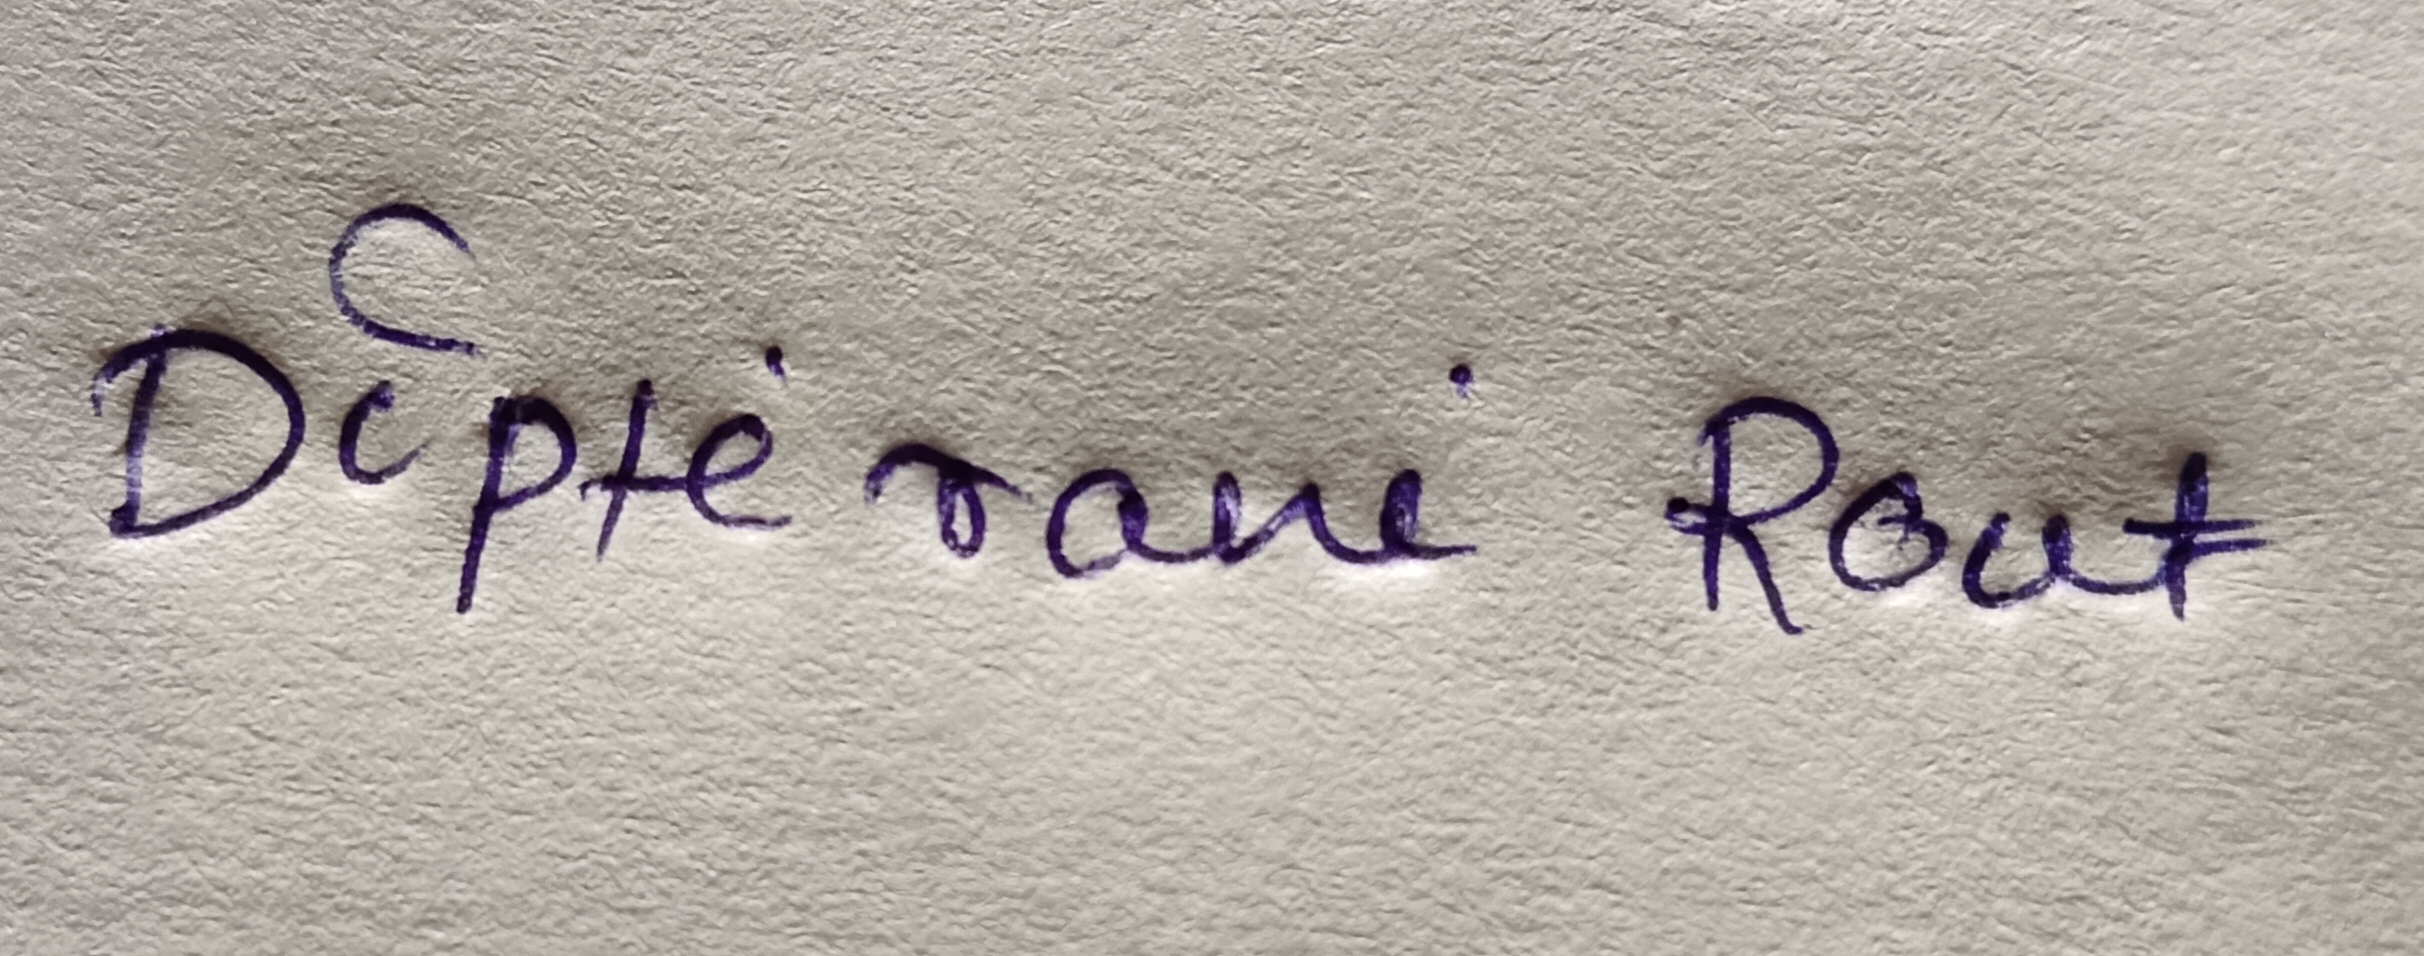 Diptirani Rout